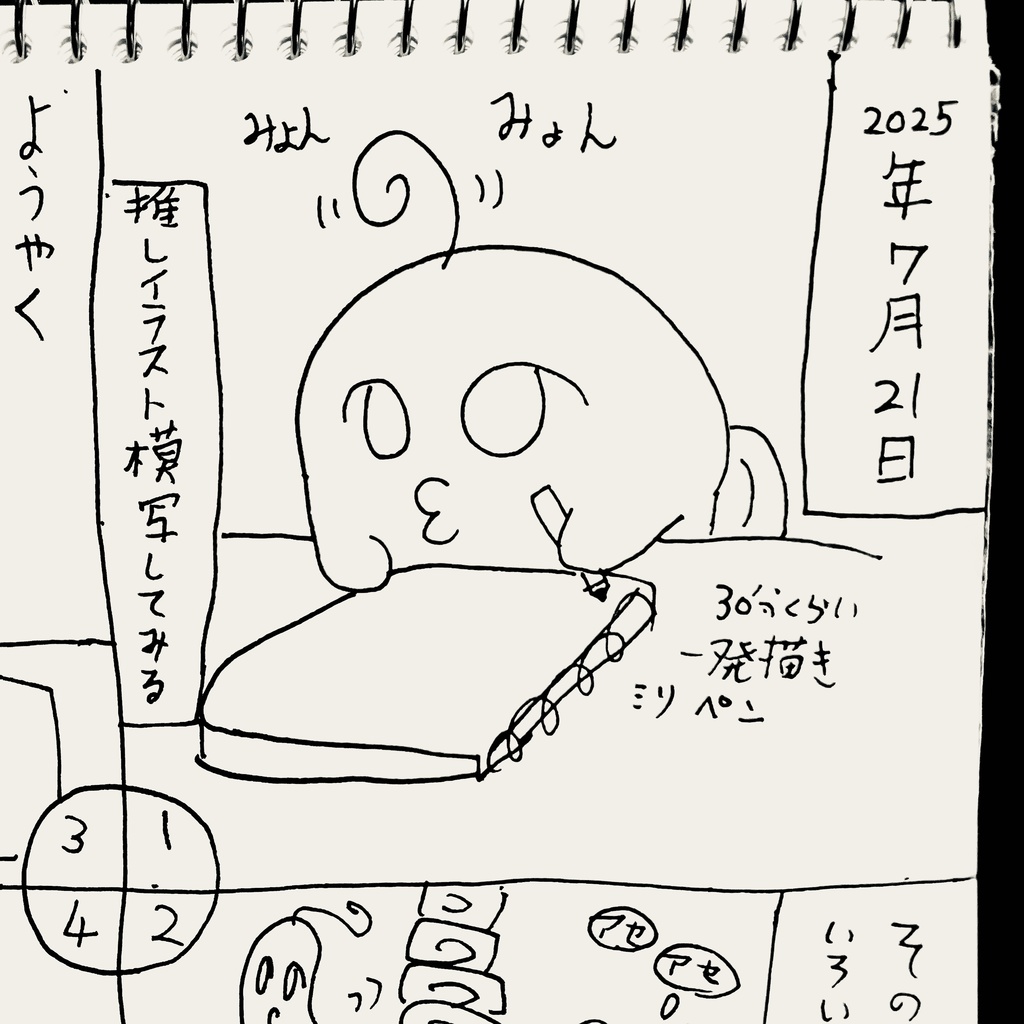 2025年7月21日
みょん
みょん
推しイラスト模写してみる
30分くらい
一発描き
ミリペン
1
2
3
4
その
いろい
アセ
アセ
ようやく